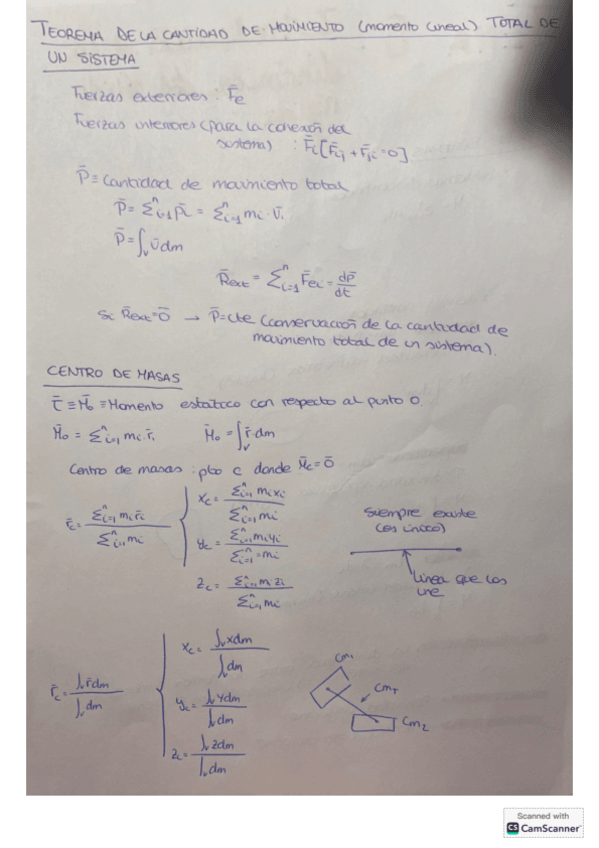 TEOREMA DE LA CANTIDAD DE MOVIMIENTO (momento lineal) TOTAL DE
UN SISTEMA
Fuerzas exteriores: F̄e
Fuerzas interiores (para la cohexión del
sistema) : F̄i [F̄ij + F̄ji = 0]
P̄ ≡ cantidad de movimiento total
P̄ = Σⁿᵢ₌₁ p̄i = Σⁿᵢ₌₁ mi · v̄i
P̄ = ∫v v̄ dm
R̄ext = Σⁿᵢ₌₁ F̄ei = dp̄/dt
Si R̄ext = 0̄ → P̄ = cte (conservación de la cantidad de
movimiento total de un sistema).
CENTRO DE MASAS
τ̄ ≡ M̄o ≡ Momento estático con respecto al punto O
M̄o = Σⁿᵢ₌₁ mi · r̄i M̄o = ∫v r̄ · dm
Centro de masas: pto c donde M̄c = 0̄
r̄c = Σⁿᵢ₌₁ mi r̄i / Σⁿᵢ₌₁ mi
xc = Σⁿᵢ₌₁ mi xi / Σⁿᵢ₌₁ mi
yc = Σⁿᵢ₌₁ mi yi / Σⁿᵢ₌₁ = mi
zc = Σⁿᵢ₌₁ mi zi / Σⁿᵢ₌₁ mi
Siempre existe
(es único)
línea que los
une
r̄c = ∫v r̄ dm / ∫v dm
xc = ∫v x dm / ∫v dm
yc = ∫v y dm / ∫v dm
zc = ∫v z dm / ∫v dm
cm1
cmT
cm2
Scanned with
CS CamScanner